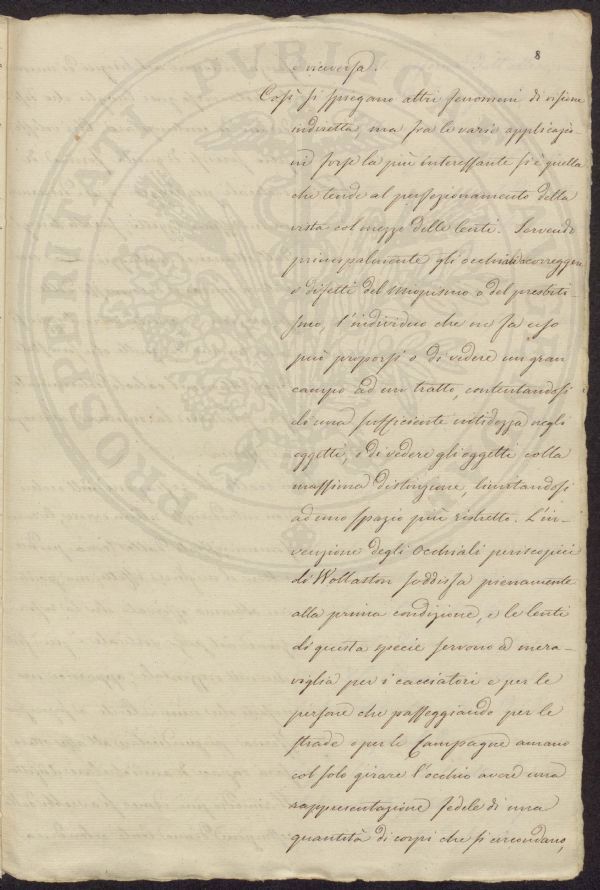 8
e viceversa.
Così si spiegano altri fenomeni di visione
indiretta, ma fra le varie applicazio-
ni forse la più interessante si è quella
che tende al perfezionamento della
vista col mezzo delle lenti. Servendo
principalmente gli occhiali a correggere
i difetti del miopismo o del presbiti-
smo, l'individuo che ne fa uso
può proporsi o di vedere un gran
campo ad un tratto, contentandosi
di una sufficiente nitidezza negli
oggetti, o di vedere gli oggetti colla
massima distinzione, limitandosi
ad uno spazio più ristretto. L'in-
venzione degli occhiali periscopici
di Wollaston soddisfa pienamente
alla prima condizione, e le lenti
di questa specie servono a mera-
viglia per i cacciatori e per le
persone che passeggiando per le
strade o per le Campagne amano
col solo girare l'occhio avere una
rappresentazione fedele di una
quantità di corpi che si circondano,
PROSPERITATI PVBLICAE